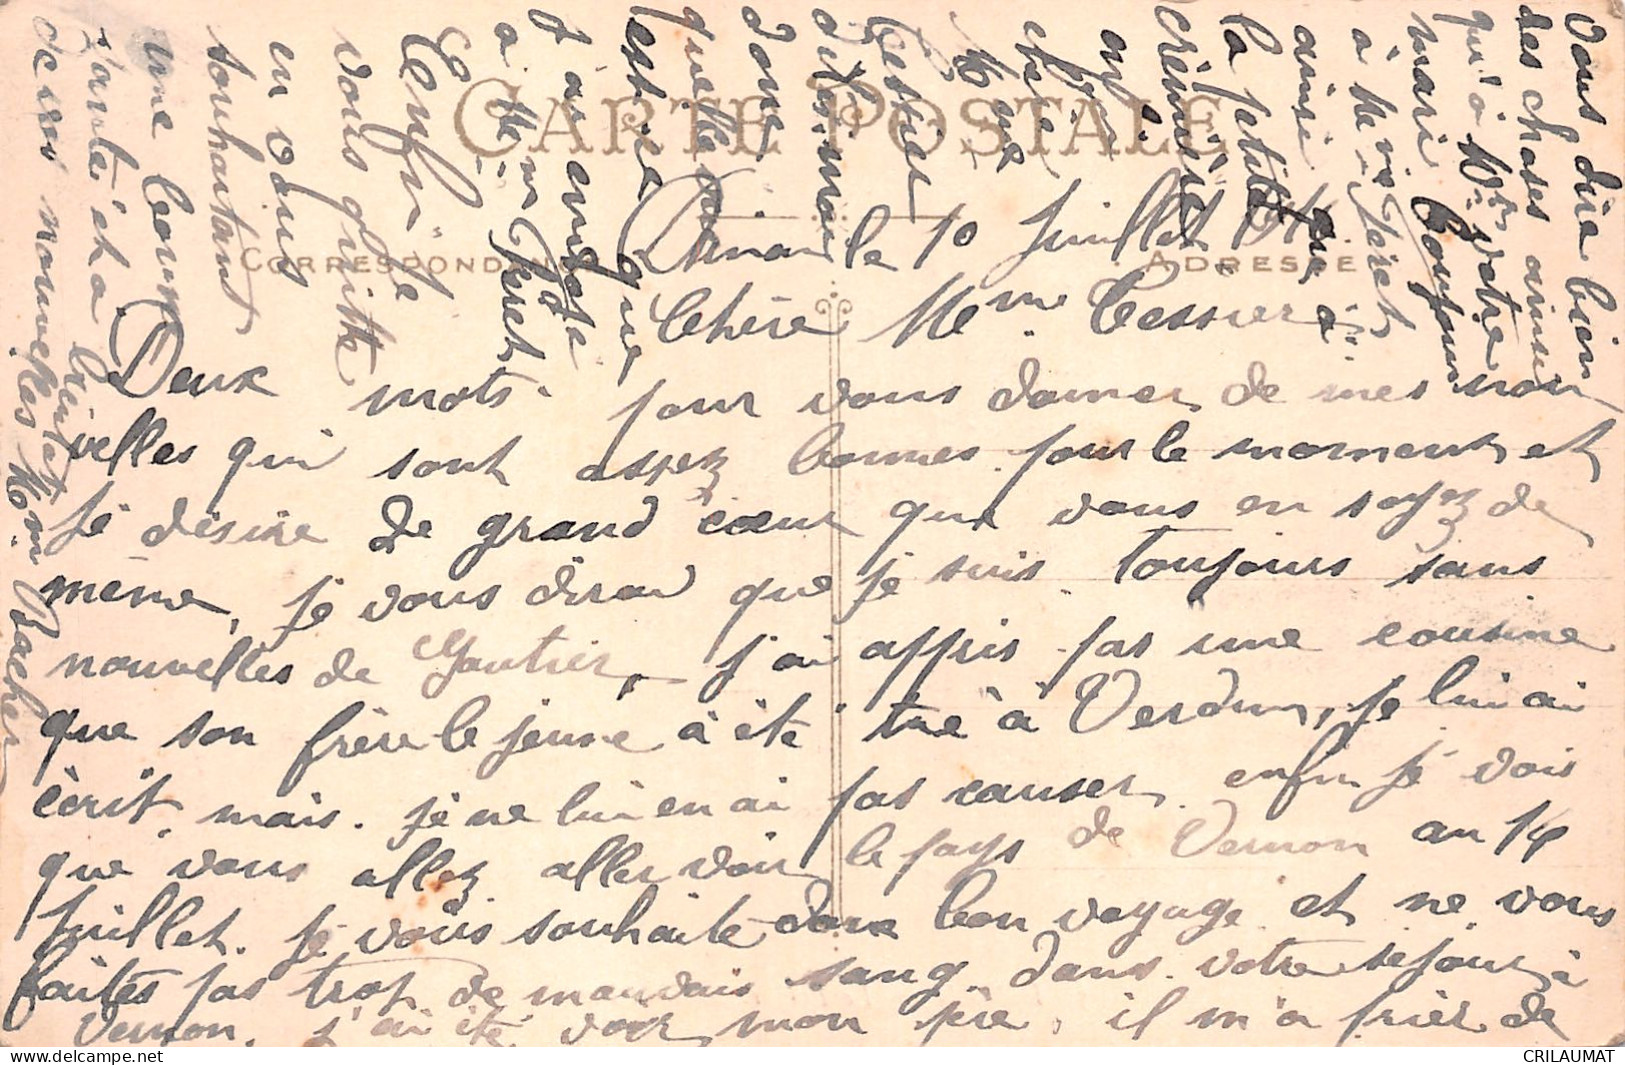 CARTE POSTALE
CORRESPONDANCE
ADRESSE
Dinan le 10 Juillet
Chère Mme Tessier
Deux mots pour vous donner de mes nou
velles qui sont assez bonnes pour le moment et
je désire de grand cœur que vous en soyez de
même, je vous dirai que je suis toujours sans
nouvelles de Gautier, j'ai appris par une cousine
que son frère le jeune à été tué à Verdun, je lui ai
écrit, mais je ne lui en ai pas causer enfin je vois
que vous allez aller voir le pays de Vernon au 14
Juillet. Je vous souhaite donc bon voyage et ne vous
faites pas trop de mauvais sang dans votre séjour à
Vernon. j'ai été voir mon père, il m'a prier de
vous dire bien
des choses ainsi
qu'à Mr votre
mari bonjour
à Me ve Jeret
ainsi que à
la petite
crèmière
Mme
Tessier
dites-moi
donc
quelle
est
que
j'ai envoyé
à Mm Jeret
Enfin je
vous quitte
en vous
souhaitant
une bonne
santé et a bientot
de vos nouvelles Mme Bacher
CRILAUMAT